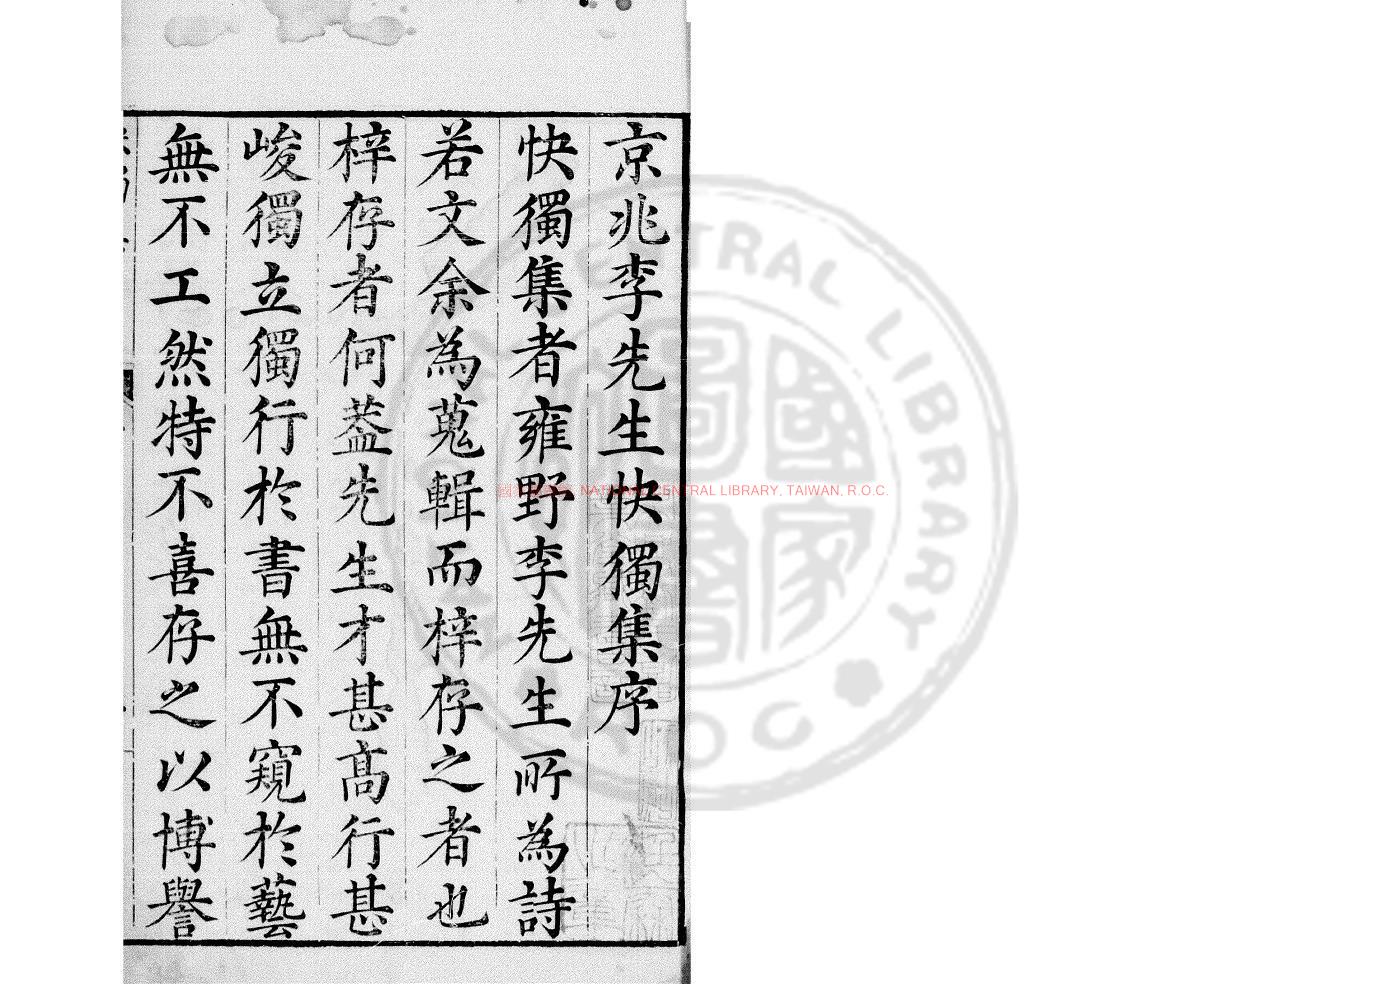 京兆李先生快獨集序
快獨集者雍野李先生所為詩
若文余為蒐輯而梓存之者也
梓存者何葢先生才甚高行甚
峻獨立獨行於書無不窺於藝
無不工然特不喜存之以博譽
NATIONAL CENTRAL LIBRARY, TAIWAN, R.O.C.
CENTRAL LIBRARY